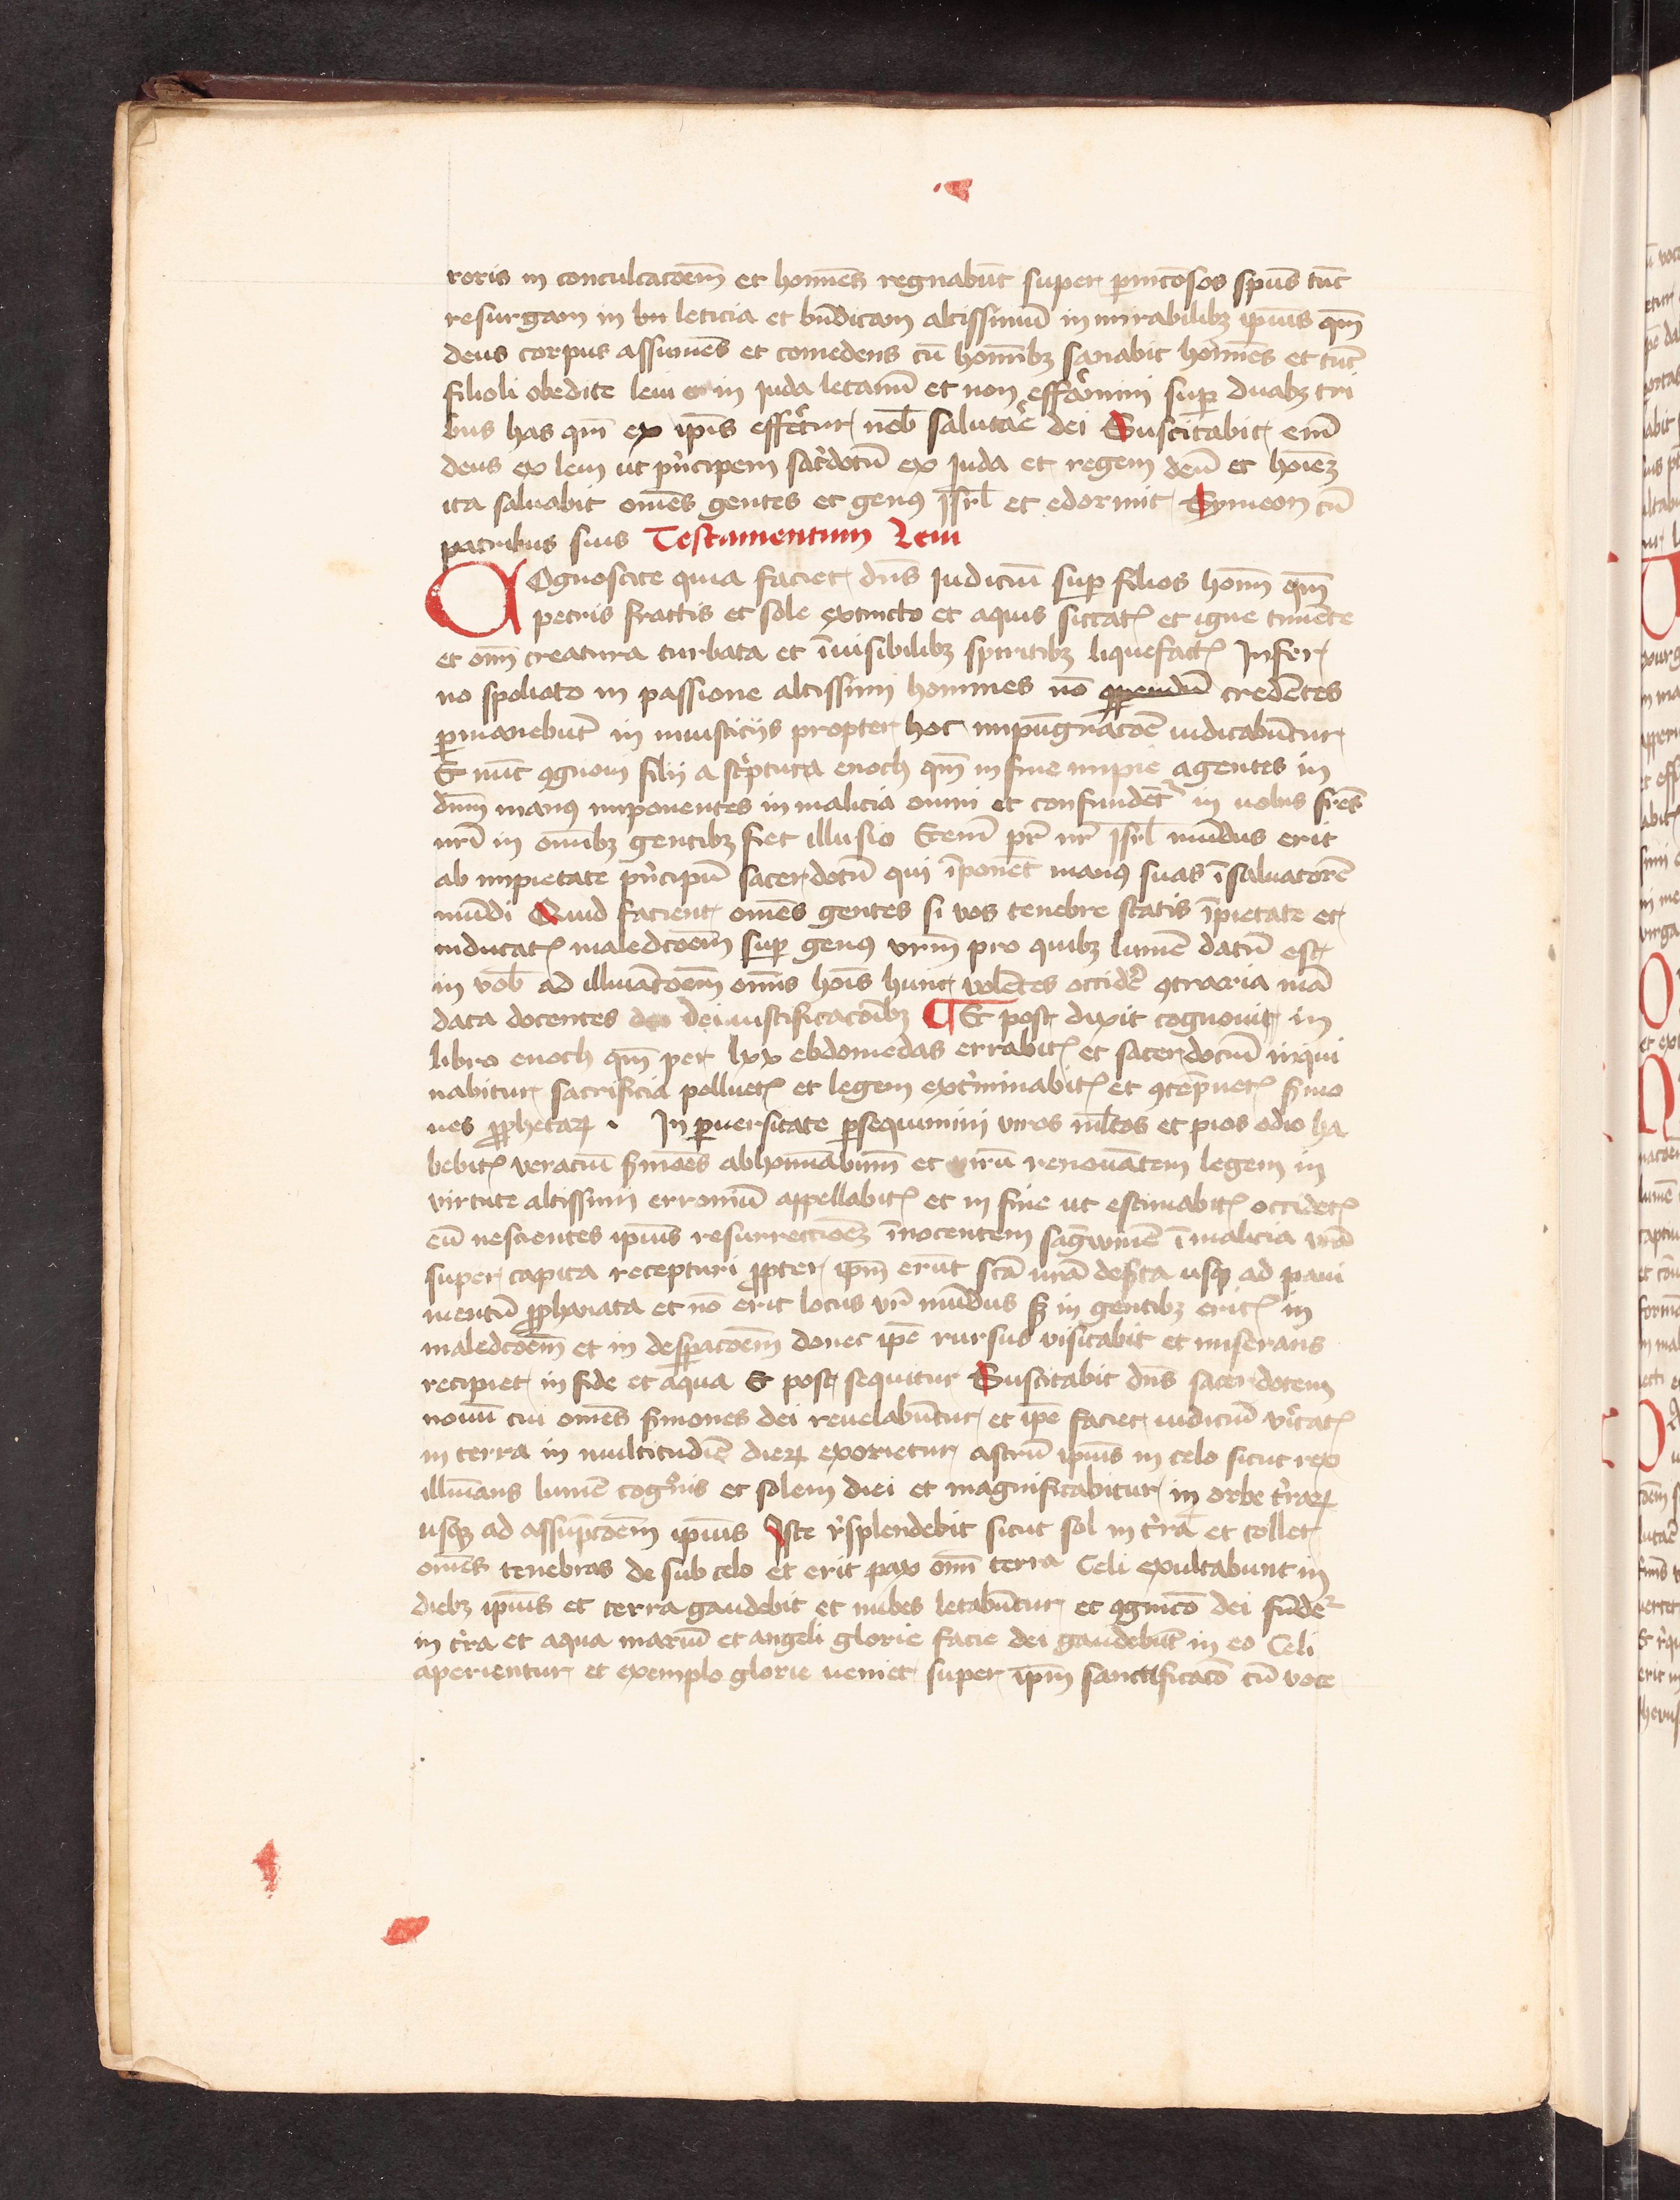 roris in conculcacōem et homīes regnabūt super pernicōsos spūs tūc
resurgam in bn leticia et bn̄dicam altissimū in mirabilibꝫ ipīus qm̄
deus corpus assumēs et comedens cū homībꝫ sanabit homīes et tūc
filioli obedite leui et in iuda letamī et non efferamini suꝑ duabꝫ tri
bus has qm̄ ex ipīs effertur nob̄ salutare dei Suscitabit em̄
deus ex leui ut pͥncipem sac̓dotū ex Juda et regem deū et hoīeꝫ
ita saluabit omēs gentes et genꝰ isrl̄ et edormit Symeon cū
patribus suis Testamentum Leui
COgnoscite quia faciet dn̄s iudiciū suꝑ filios homī qm̄
petris fractis et sole extincto et aquis siccatꝭ et igne timēte
et omī creatura turbata et īuisibilibꝫ spiritibꝫ liquefactꝭ Infer
no spoliato in passione altissimi homines nō credētes
ꝑmanebūt in iniusticijs propter hoc iudicabūtur
Et nūc ꝯgnoui filij a scͥptura enoch qm̄ in fine impie agentes in
dn̄m manꝰ imponentes in malicia omni et confundētᷣ in uobis frēs
nr̄i in omībꝫ gentibꝫ fiet illusio Etenī pr̄ nr̄ isrl̄ mūdus erit
ab impietate pͥncipū sacerdotū qui īponēt manꝰ suas ī saluatorē
mūdi Quid facient omēs gentes si vos tenebre statis īpietate et
inducatꝭ maledcōem suꝑ genꝰ vr̄m pro quibꝫ lumē datū est
in vob̄ ad illuīatōem omīs hoīs hunc volētes occid̓e ꝯtraria mā
data docentes dei iustificacōibꝫ ¶ Et post dixit cognouit in
libro enoch qm̄ per lxx ebdomedas errabitꝭ et sacerdociū inqui
nabitur sacrificia polluetꝭ et legem ext̓minabitꝭ et ꝯtēpnetꝭ s̓mo
nes ꝓphetaꝝ . In ꝑuersitate ꝑsequimini viros ml̄tos et pios odio ha
bebitꝭ veraciū s̓mōes abhomīabimī et virū renouātem legem in
virtute altissimi erroniū appellabitꝭ et in fine ut estimabitꝭ occidetꝭ
eū nescientes ipīus resurrectiōeꝫ īnocentem sāgwinē ī malicia vr̄a
super capita recepturi ꝓpter ip̄m erūt scā vr̄a des̓ta usqꝫ ad paui
mentū ꝓphanata et nō erit locus vr̄ mūdus sꝫ in gentibꝫ eritꝭ in
maledcōem et in despacōem donec ip̄e rursus visitabit et miserans
recipiet in fide et aqua Et post sequitur Suscitabit dn̄s sacerdotem
nouū cui omēs s̓mones dei reuelabūtur et ip̄e faciet iudiciū v̓itatꝭ
in terra in multitudīe dieꝝ exorietur astrū ipīus in celo sicut rex
illuīans lumē cogͦnis et solem diei et magnificabitur in orbe t̓raꝝ
usqꝫ ad assūptōem ipīus Iste r̓splendebit sicut sol in t̓ra et tollet
omēs tenebras de sub celo et erit pax omī terra Celi exultabunt in
diebꝫ ipīus et terra gaudebit et nubes letabūtur et ꝯgnicō dei fūdeᷣ
in t̓ra et aqua mariū et angeli glorie facie dei gaudebūt in eo Celi
aperientur et exemplo glorie ueniet super ip̄m sanctificacō cū voce